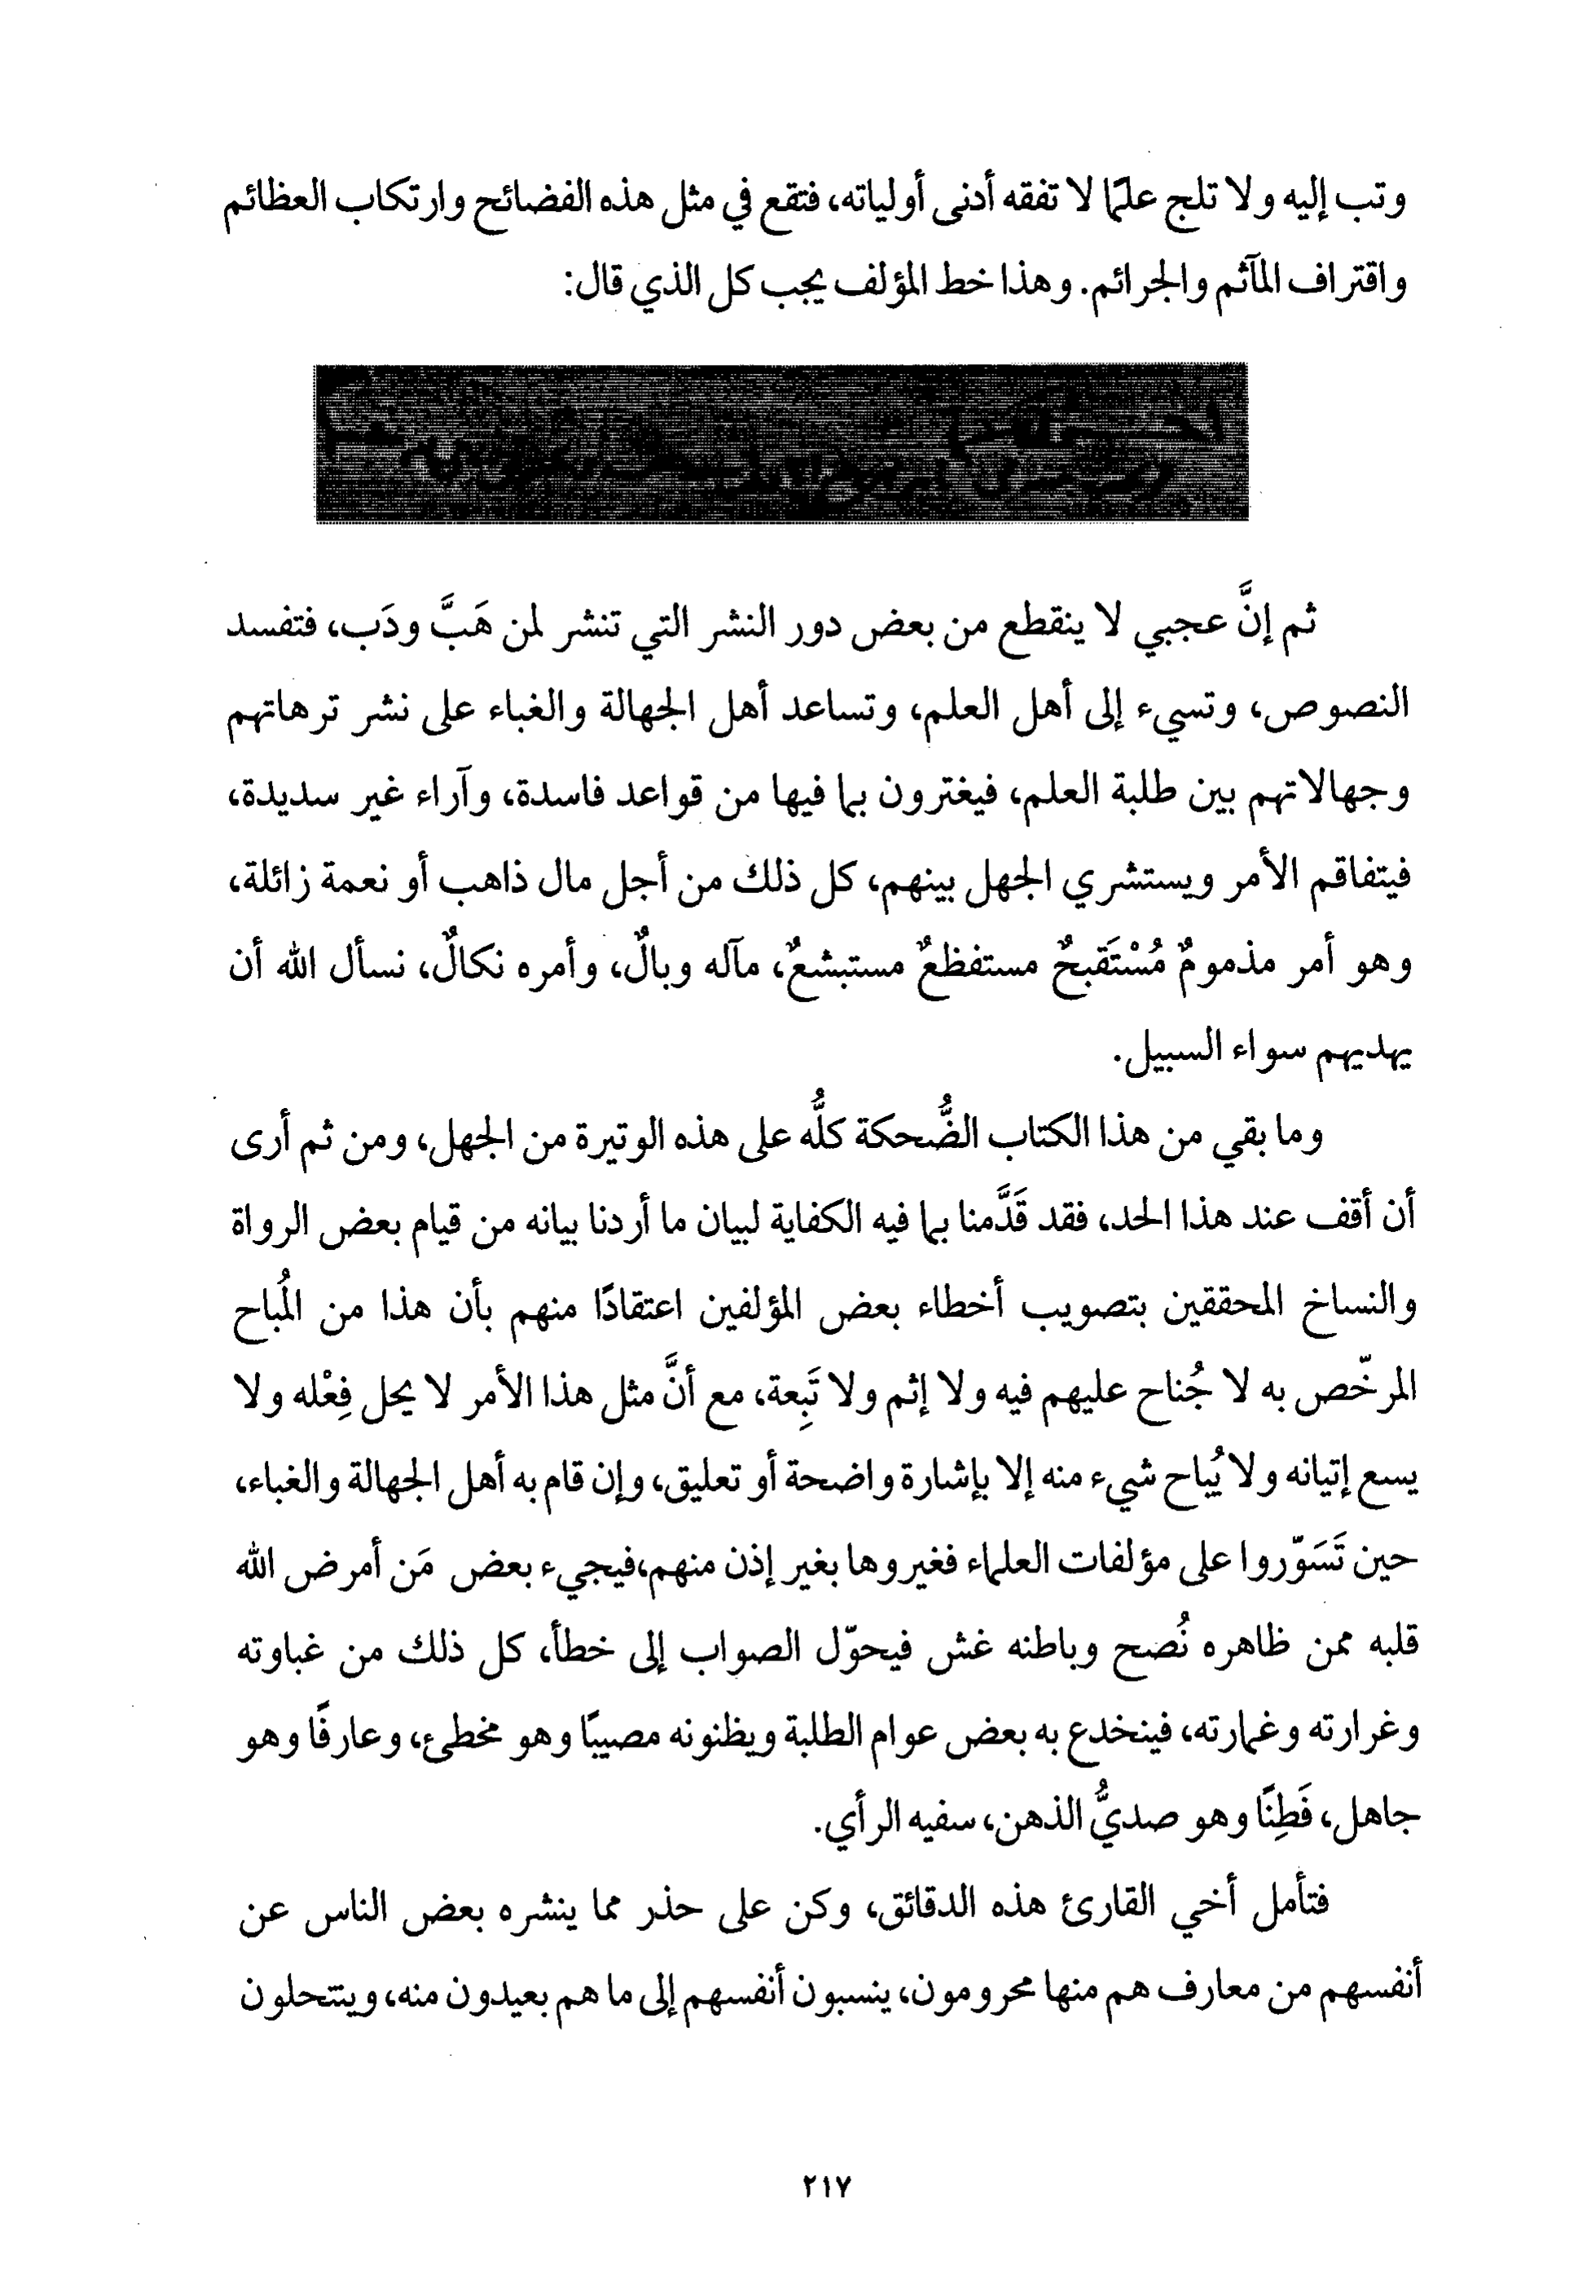 وتب إليه ولا تلج علمًا لا تفقه أدنى أولياته، فتقع في مثل هذه الفضائح وارتكاب العظائم
واقتراف المآثم والجرائم. وهذا خط المؤلف يجب كل الذي قال:
ثم إنَّ عجبي لا ينقطع من بعض دور النشر التي تنشر لمن هَبَّ ودَب، فتفسد
النصوص، وتسيء إلى أهل العلم، وتساعد أهل الجهالة والغباء على نشر ترهاتهم
وجهالاتهم بين طلبة العلم، فيغترون بما فيها من قواعد فاسدة، وآراء غير سديدة،
فيتفاقم الأمر ويستشري الجهل بينهم، كل ذلك من أجل مال ذاهب أو نعمة زائلة،
وهو أمر مذمومٌ مُسْتَقبحٌ مستفظعٌ مستبشعٌ، مآله وبالٌ، وأمره نكالٌ، نسأل الله أن
يهديهم سواء السبيل.
وما بقي من هذا الكتاب الضُّحكة كلُّه على هذه الوتيرة من الجهل، ومن ثم أرى
أن أقف عند هذا الحد، فقد قَدَّمنا بما فيه الكفاية لبيان ما أردنا بيانه من قيام بعض الرواة
والنساخ المحققين بتصويب أخطاء بعض المؤلفين اعتقادًا منهم بأن هذا من المُباح
المرخّص به لا جُناح عليهم فيه ولا إثم ولا تَبِعة، مع أنَّ مثل هذا الأمر لا يحل فِعْله ولا
يسع إتيانه ولا يُباح شيء منه إلا بإشارة واضحة أو تعليق، وإن قام به أهل الجهالة والغباء،
حين تَسَوّروا على مؤلفات العلماء فغيروها بغير إذن منهم،فيجيء بعض مَن أمرض الله
قلبه ممن ظاهره نُصح وباطنه غش فيحوّل الصواب إلى خطأ، كل ذلك من غباوته
وغرارته وغمارته، فينخدع به بعض عوام الطلبة ويظنونه مصيبًا وهو مخطئ، وعارفًا وهو
جاهل، فَطِنًا وهو صديُّ الذهن، سفيه الرأي.
فتأمل أخي القارئ هذه الدقائق، وكن على حذر مما ينشره بعض الناس عن
أنفسهم من معارف هم منها محرومون، ينسبون أنفسهم إلى ما هم بعيدون منه، وينتحلون
٢١٧